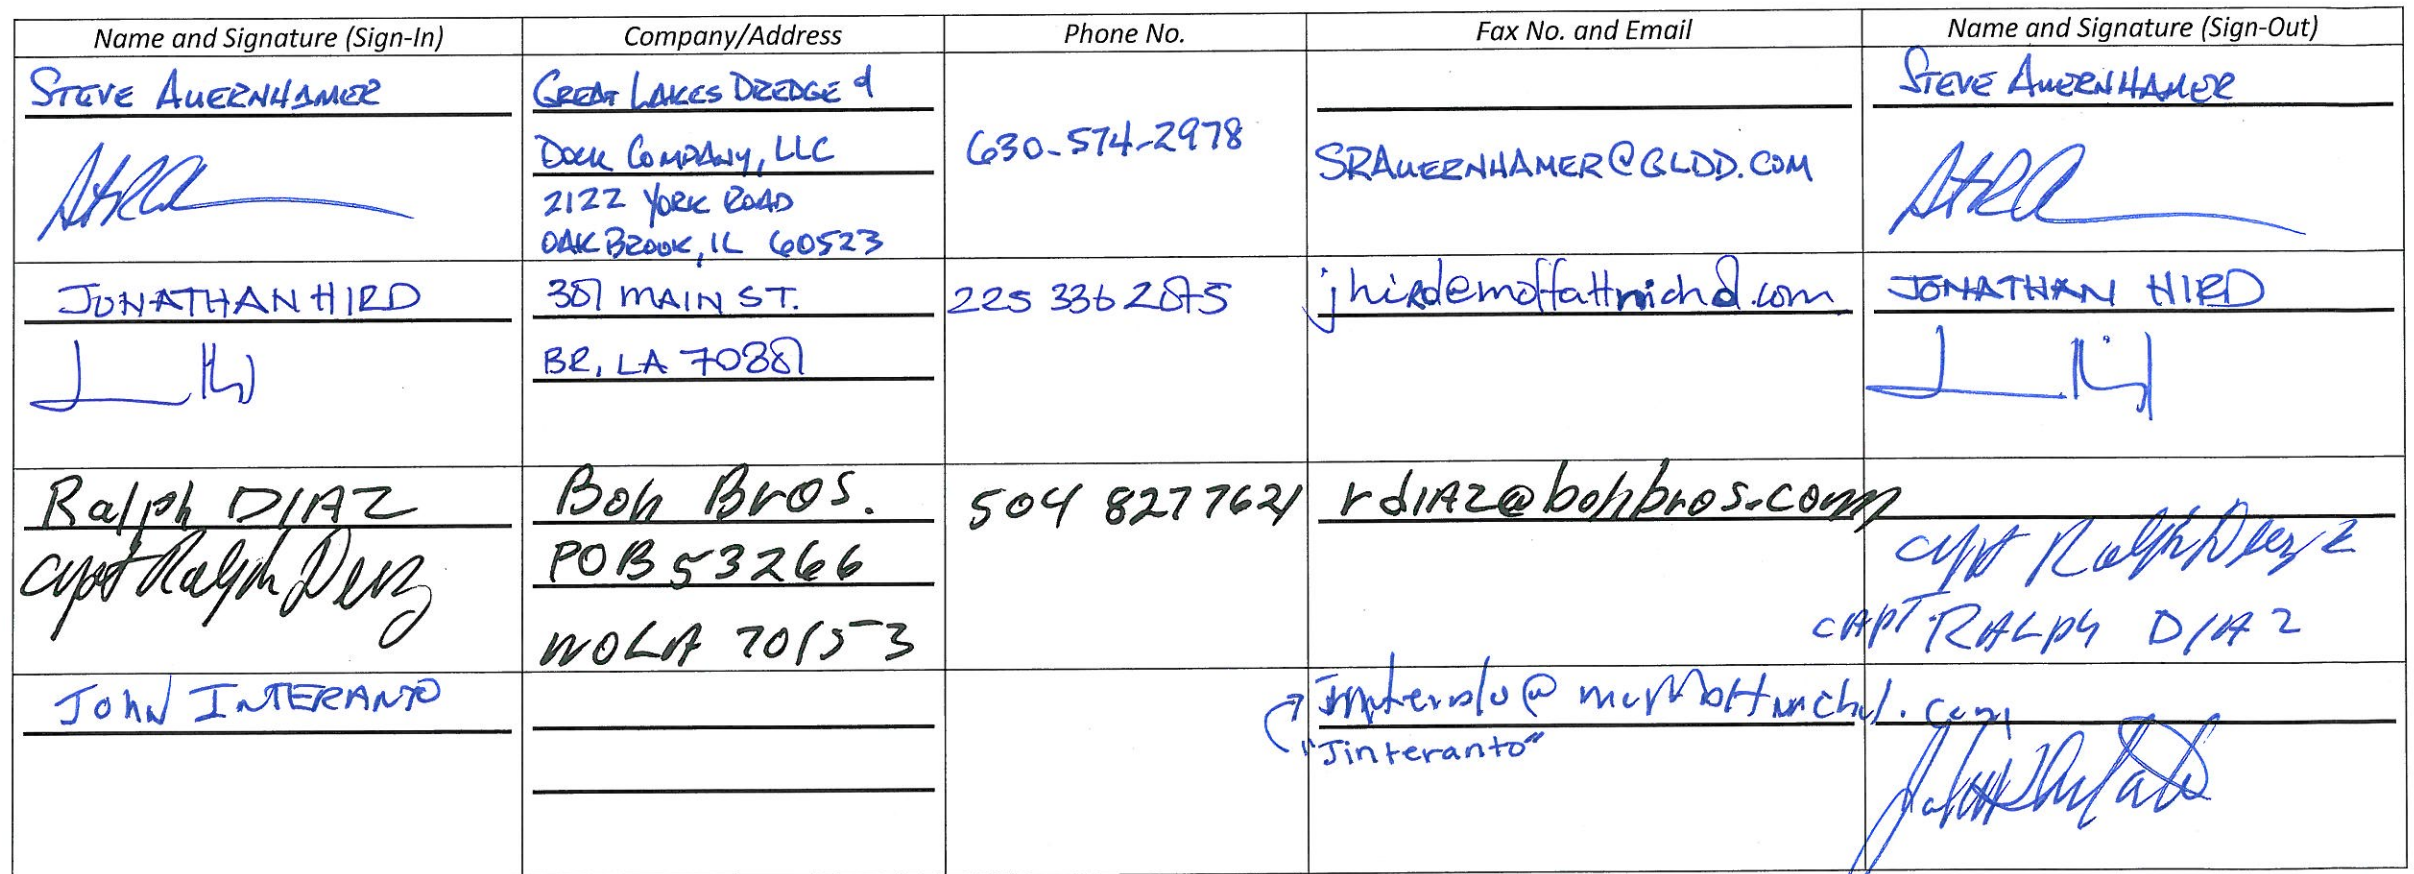 Name and Signature (Sign-In) Company/Address Phone No. Fax No. and Email Name and Signature (Sign-Out)
STEVE AUERNHAMER
GREAT LAKES DREDGE &
DOCK COMPANY, LLC
2122 YORK ROAD
OAK BROOK, IL 60523
630-574-2978
SRAUERNHAMER@GLDD.COM
STEVE AUERNHAMER
JONATHAN HIRD
301 MAIN ST.
BR, LA 70801
225 336 2075
JONATHAN HIRD
Ralph DIAZ
Capt Ralph Diaz
Boh Bros.
POB 53266
NOLA 70153
504 827 7621
rdiaz@bohbros.com
Capt Ralph Diaz
CAPT RALPH DIAZ
JOHN INTERANTO
"Jinteranto"